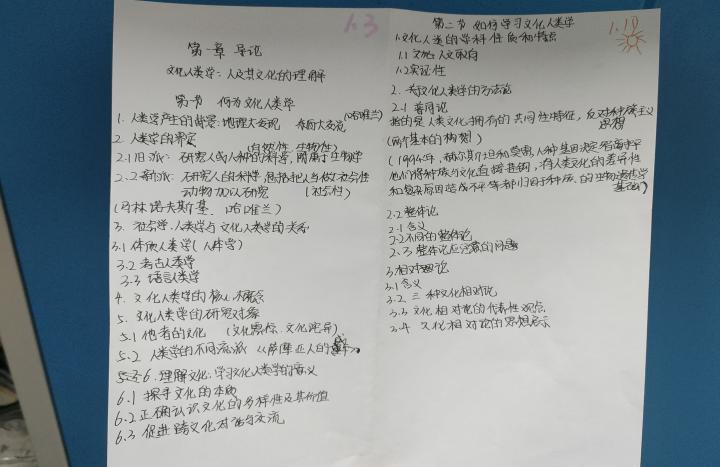 1.3
第一章 导论
文化人类学：人及其文化的理解
第一节 何为文化人类学
1. 人类学产生的背景：地理大发现 东西大交流 (哈唯兰)
2 人类学的界定
(自然性 生物性)
2.1旧派：研究人或人种的科学，附属于生物学
2.2新派：研究人的科学，包括把人当做社会性
动物加以研究 (社会性)
(马林诺夫斯基、哈唯兰)
3. 社会学、人类学与文化人类学的关系
3.1 体质人类学(人体学)
3.2 考古人类学
3.3 语言人类学
4. 文化人类学的核心概念
5. 文化人类学的研究对象
5.1 他者的文化 (文化震惊、文化差异)
5.2 人类学的不同流派 《萨摩亚人的
6. 理解文化：学习文化人类学的意义
6.1 探寻文化的本质
6.2 正确认识文化的多样性及其价值
6.3 促进跨文化对话与交流
1.10
第二节 如何学习文化人类学
1.文化人类的学科性质和特点
1.1 人文取向
1.2实证性
2. 文化人类学的方法论
2.1 普同论
指的是人类文化拥有的共同性特征，反对种族主义
思想
(两个基本的构想)
(1994年，赫尔斯坦和莫雷，人种基因决定智商高低
他们将种族与文化直接挂钩，将人类文化的差异性
和复杂原因造成不平等都归因于种族的生物遗传学
基础)
2.2 整体论
2.1 含义
2.2不同的整体论
2.3 整体论应注意的问题
3相对论
3.1 含义
3.2 三种文化相对论
3.3 文化相对论的代表性观点
3.4 文化相对论的思想启示